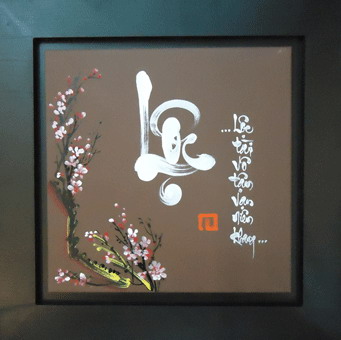 Lộc
... Lộc
tài
vô
tận
vạn
niên
khang ...